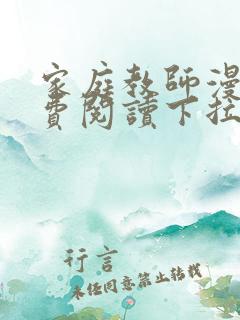 家庭教師漫
費閱讀下拉
行言
未經同意禁止轉載